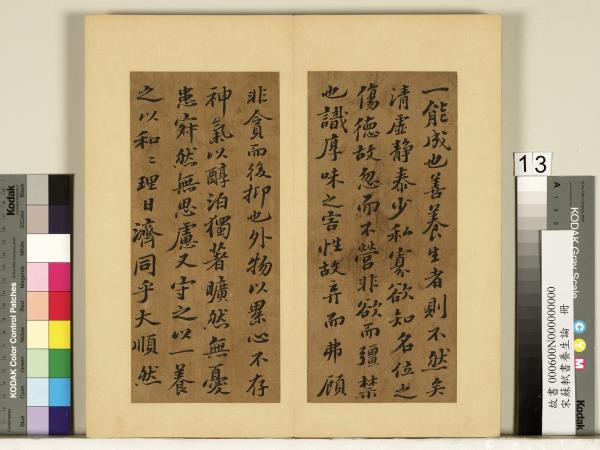 一能成也善養生者則不然矣
清虛靜泰少私寡欲知名位之
傷德故忽而不營非欲而彊禁
也識厚味之害性故弃而弗顧
非貪而後抑也外物以累心不存
神氣以醇泊獨著曠然無憂
患寂然無思慮又守之以一養
之以和〻理日濟同乎大順然
13
故書 000600N000000000
宋蘇軾書養生論 冊
KODAK Gray Scale
C Y M
Kodak
A 1 2
KODAK Color Control Patches
Kodak
Black
3/Color
White
Magenta
Red
Yellow
Green
Cyan
Blue